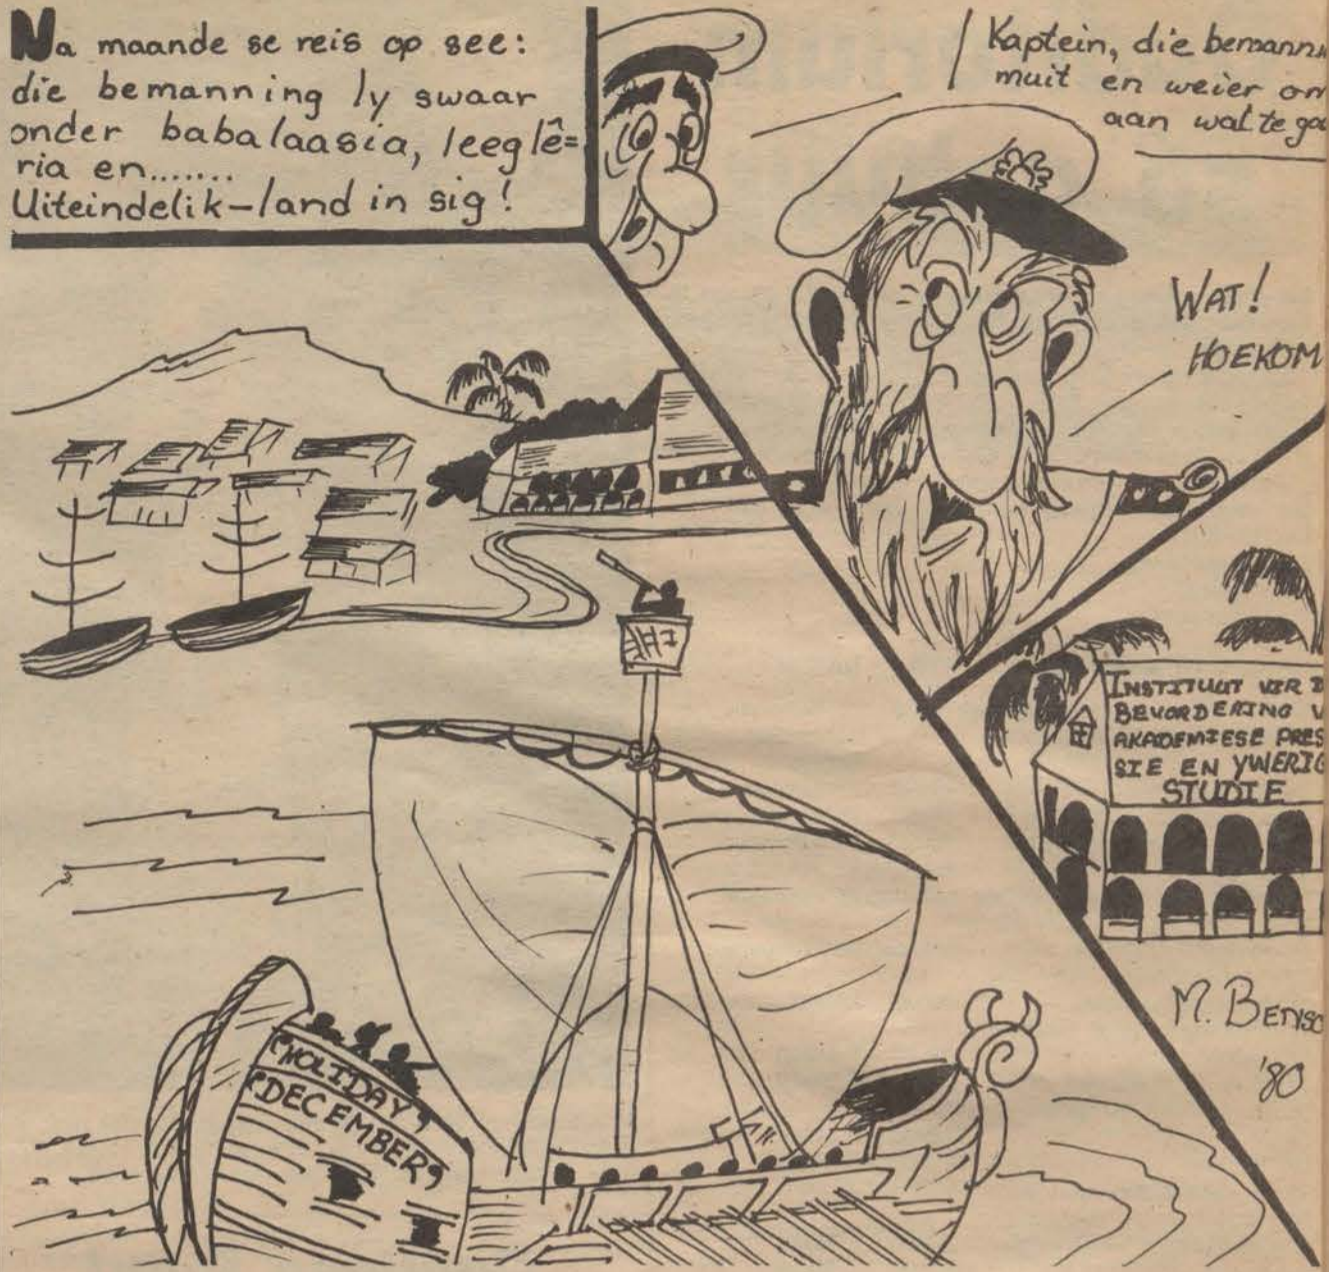 Na maande se reis op see:
die bemanning ly swaar
onder babalaasia, leeglê=
ria en.......
Uiteindelik-land in sig!
Kaptein, die bemann
muit en weier om
aan wal te ga
WAT!
HOEKOM
INSTITUUT VIR D
BEVORDERING V
AKADEMIESE PRES
SIE EN YWERIG
STUDIE
"HOLIDAY
"DECEMBER"
M. BENSC
'80